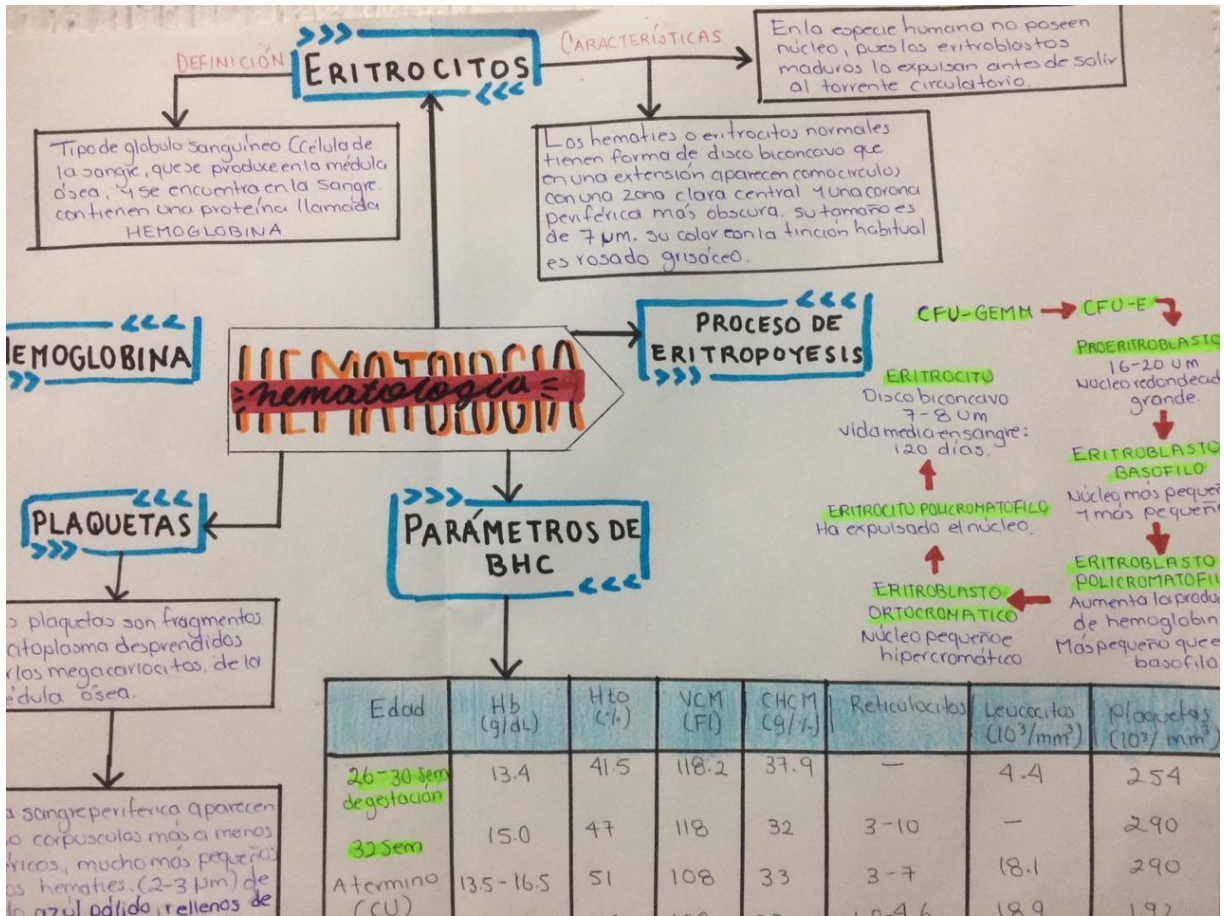 ERITROCITOS
DEFINICIÓN
CARACTERÍSTICAS
En la especie humana no poseen
núcleo, pues los eritroblastos
maduros lo expulsan antes de salir
al torrente circulatorio.
Tipo de glóbulo sanguíneo (célula de
la sangre, que se produce en la médula
ósea, y se encuentra en la sangre.
contienen una proteína llamada
HEMOGLOBINA
Los hematies o eritrocitos normales
tienen forma de disco biconcavo que
en una extensión aparecen como circulos
con una zona clara central y una corona
periférica más obscura. su tamaño es
de 7 µm. su color con la tinción habitual
es rosado grisáceo.
EMOGLOBINA
HEMATOLOGIA
hematologia
PROCESO DE
ERITROPOYESIS
CFU-GEMM
CFU-E
PROERITROBLASTO
16-20 Um
Núcleo redondead
grande.
ERITROBLASTO
BASOFILO
Núcleo más pequeñ
y más pequeñ
ERITROBLASTO
POLICROMATOFIL
Aumenta la produc
de hemoglobin
Más pequeño que e
basofilo
ERITROBLASTO
ORTOCROMATICO
Núcleo pequeño e
hipercromático
ERITROCITO POLICROMATOFILO
Ha expulsado el núcleo.
ERITROCITO
Disco biconcavo
7-8 Um
vida media en sangre:
120 días.
PLAQUETAS
s plaquetas son fragmentos
citoplasma desprendidos
r los megacariocitos, de la
édula ósea.
a sangre periferica aparecen
o corpusculos más a menos
ricos, mucho más pequeños
os hematies. (2-3 µm) de
azul pálido, rellenos de
PARÁMETROS DE
BHC
Edad Hb (g/dL) Hto (%) VCM (Fl) CHCM (g/%) Reticulocitos Leucocitos (10³/mm³) Plaquetas (10³/mm³)
26-30 sem de gestación 13.4 41.5 118.2 37.9 — 4.4 254
32 Sem 15.0 47 118 32 3-10 — 290
A termino (CU) 13.5-16.5 51 108 33 3-7 18.1 290
18.9 192